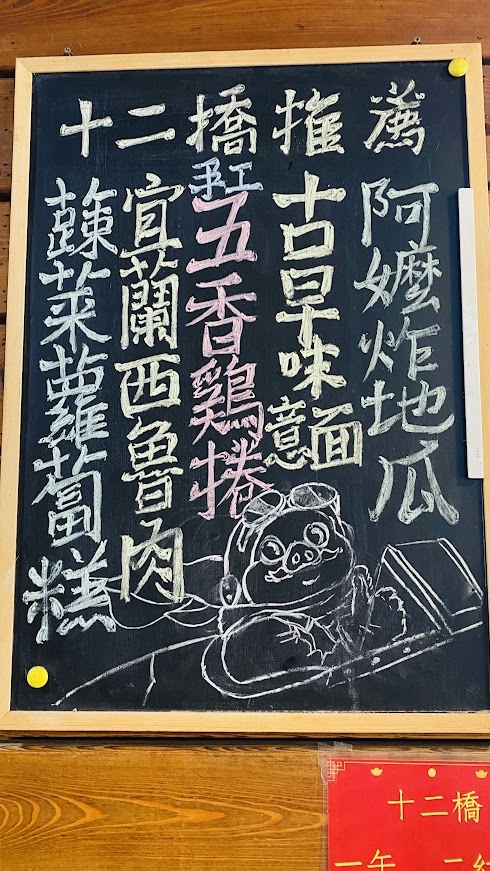 十二橋推薦
阿嬤炸地瓜
古早味意面
手工五香鷄捲
宜蘭西魯肉
菜蘿蔔糕
十二橋